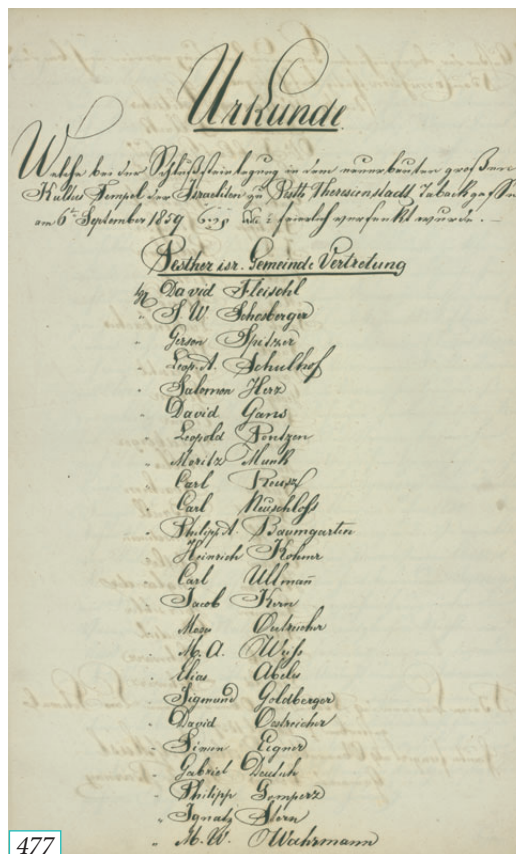 Urkunde
Welche bei der Schlußsteinlegung in dem neuerbauten großen
Kultus Tempel der Israeliten zu Pesth Theresienstadt Tabackgasse
am 6t September 1859 feierlich versenkt wurde. –
Pesther isr. Gemeinde Vertretung
David Fleischl
" S. W. Schosberger
" Gerson Spitzer
" Leop. A. Schulhof
" Salomon Herz
" David Gans
" Leopold
" Moritz Munk
" Carl
" Carl Neuschloss
" Philipp A. Baumgarten
" Heinrich Kohner
" Carl Ullmañ
" Jacob Kern
" Oestreicher
" M. A. Weiss
" Elias Abeles
" Sigmund Goldberger
" David Oestreicher
" Simon Eigner
" Gabriel Deutsch
" Philipp Gomperz
" Ignatz Stern
" M. W. Wahrmann
477